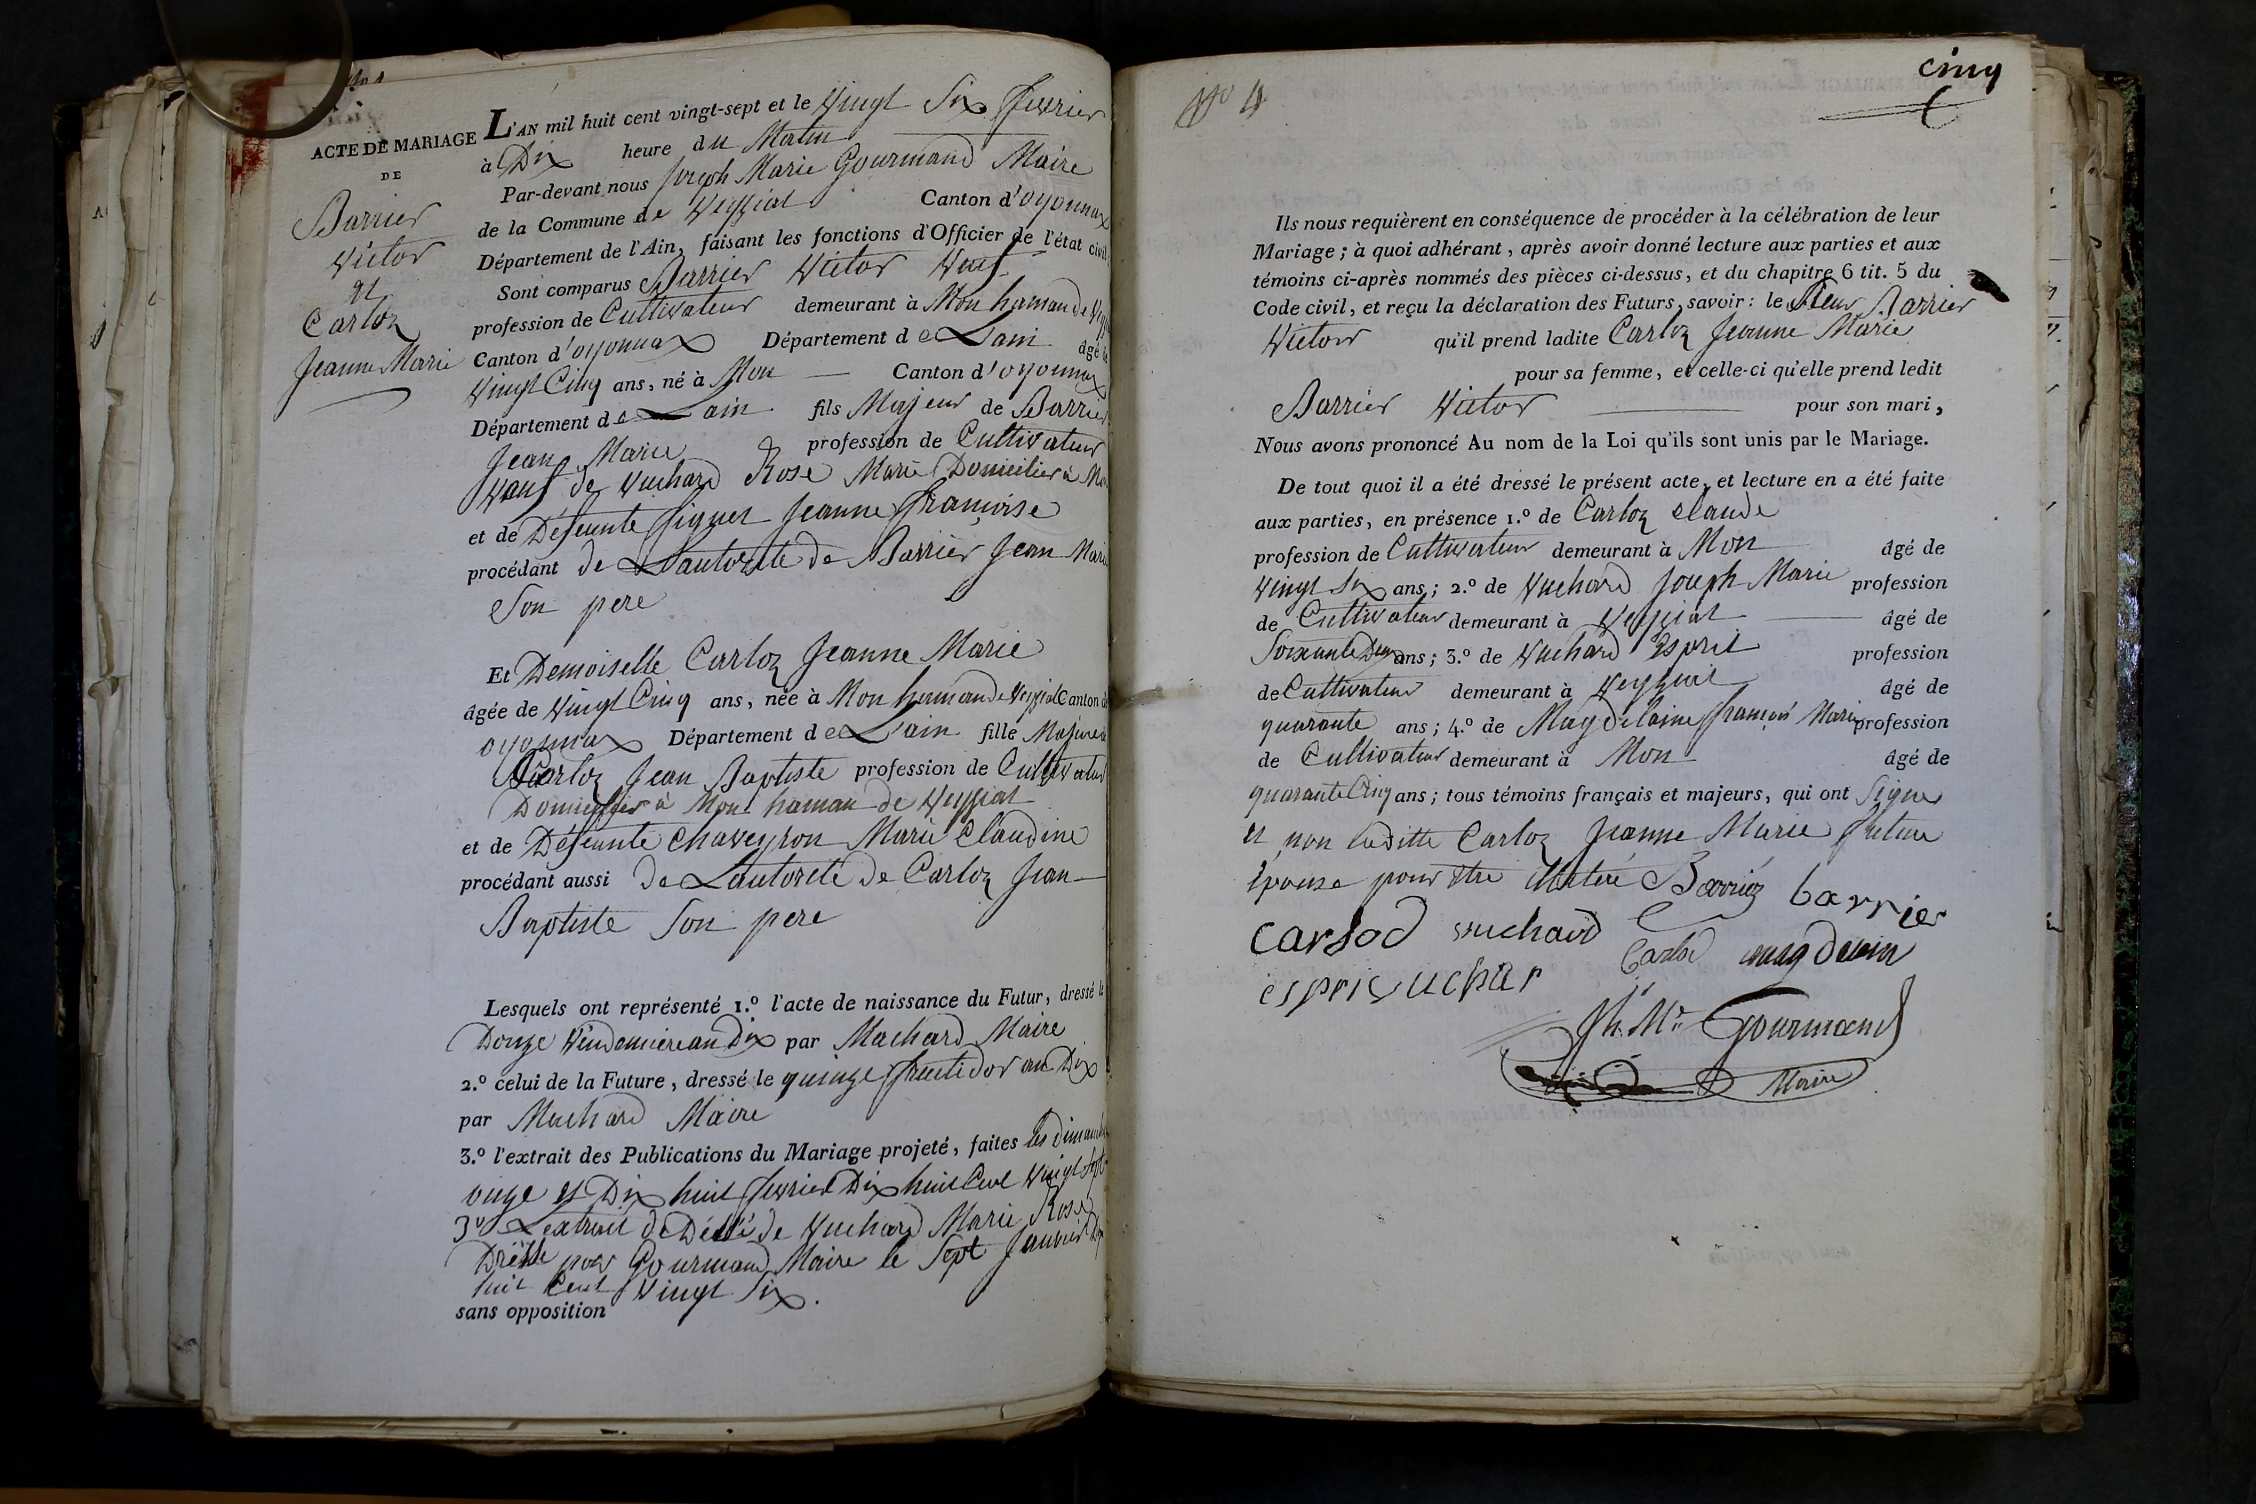 ACTE DE MARIAGE
DE
Barrier
Victor
et
Carloz
Jeanne Marie
L'AN mil huit cent vingt-sept et le Vingt Six fevrier
à Dix heure du Matin
Par-devant nous Joseph Marie Gourmand Maire
de la Commune de Veyziat Canton d'oyonnax
Département de l'Ain, faisant les fonctions d'Officier de l'état civil
Sont comparus Barrier Victor Veuf
profession de Cultivateur demeurant à Mon hamau de Veyziat
Canton d'oyonnax Département de Lain âgé de
Vingt Cinq ans, né à Mon Canton d'oyonnax
Département de Lain fils Majeur de Barrier
Jean Marie profession de Cultivateur
Vauf de Vuchard Rose Marie Domicilier à Mon
et de Défeunte figuet Jeanne françoise
procédant de Lautorité de Barrier Jean Marie
Son pere
Et Demoiselle Carloz Jeanne Marie
âgée de Vingt Cinq ans, née à Mon hamau de Veyziat Canton de
oyonnax Département de Lain fille Majeure de
Carloz Jean Baptiste profession de Cultivateur
à Mon hamau de Veyziat
et de Défeunte Chaveyron Marie Claudine
procédant aussi de Lautorité de Carloz Jean
Baptiste Son pere
Lesquels ont représenté 1.º l'acte de naissance du Futur, dressé le
Douze Vendemiere an Dix par Machard Maire
2.º celui de la Future, dressé le quinze fructidor an Dix
par Machard Maire
3.º l'extrait des Publications du Mariage projeté, faites les dimanche
onze et Dix huit fevrier Dix huit Cent Vingt Sept
3º Lextrait de Décé de Vuchard Marie Rose
par Gourmand Maire le Sept Janvier Dix
huit Cent Vingt Six.
sans opposition
Nº 4
cinq
Ils nous requièrent en conséquence de procéder à la célébration de leur
Mariage; à quoi adhérant, après avoir donné lecture aux parties et aux
témoins ci-après nommés des pièces ci-dessus, et du chapitre 6 tit. 5 du
Code civil, et reçu la déclaration des Futurs, savoir: le Sieur Barrier
Victor qu'il prend ladite Carloz Jeanne Marie
pour sa femme, et celle-ci qu'elle prend ledit
Barrier Victor pour son mari,
Nous avons prononcé Au nom de la Loi qu'ils sont unis par le Mariage.
De tout quoi il a été dressé le présent acte, et lecture en a été faite
aux parties, en présence 1.º de Carloz Claude
profession de Cultivateur demeurant à Mon âgé de
Vingt Six ans; 2.º de Vuchard Joseph Marie profession
de Cultivateur demeurant à Veyziat âgé de
Soixante Deux ans; 3.º de Vuchard Esprit profession
de Cultivateur demeurant à Veyziat âgé de
quarante ans; 4.º de Magdelaine françois Marie profession
de Cultivateur demeurant à Mon âgé de
quarante Cinq ans; tous témoins français et majeurs, qui ont Signer
et non laditte Carloz Jeanne Marie future
Epouse pour être Barrier barrier
carlod vuchard
Carlod magdelein
espri vuchar
Jh. Mie Gourmand
Maire